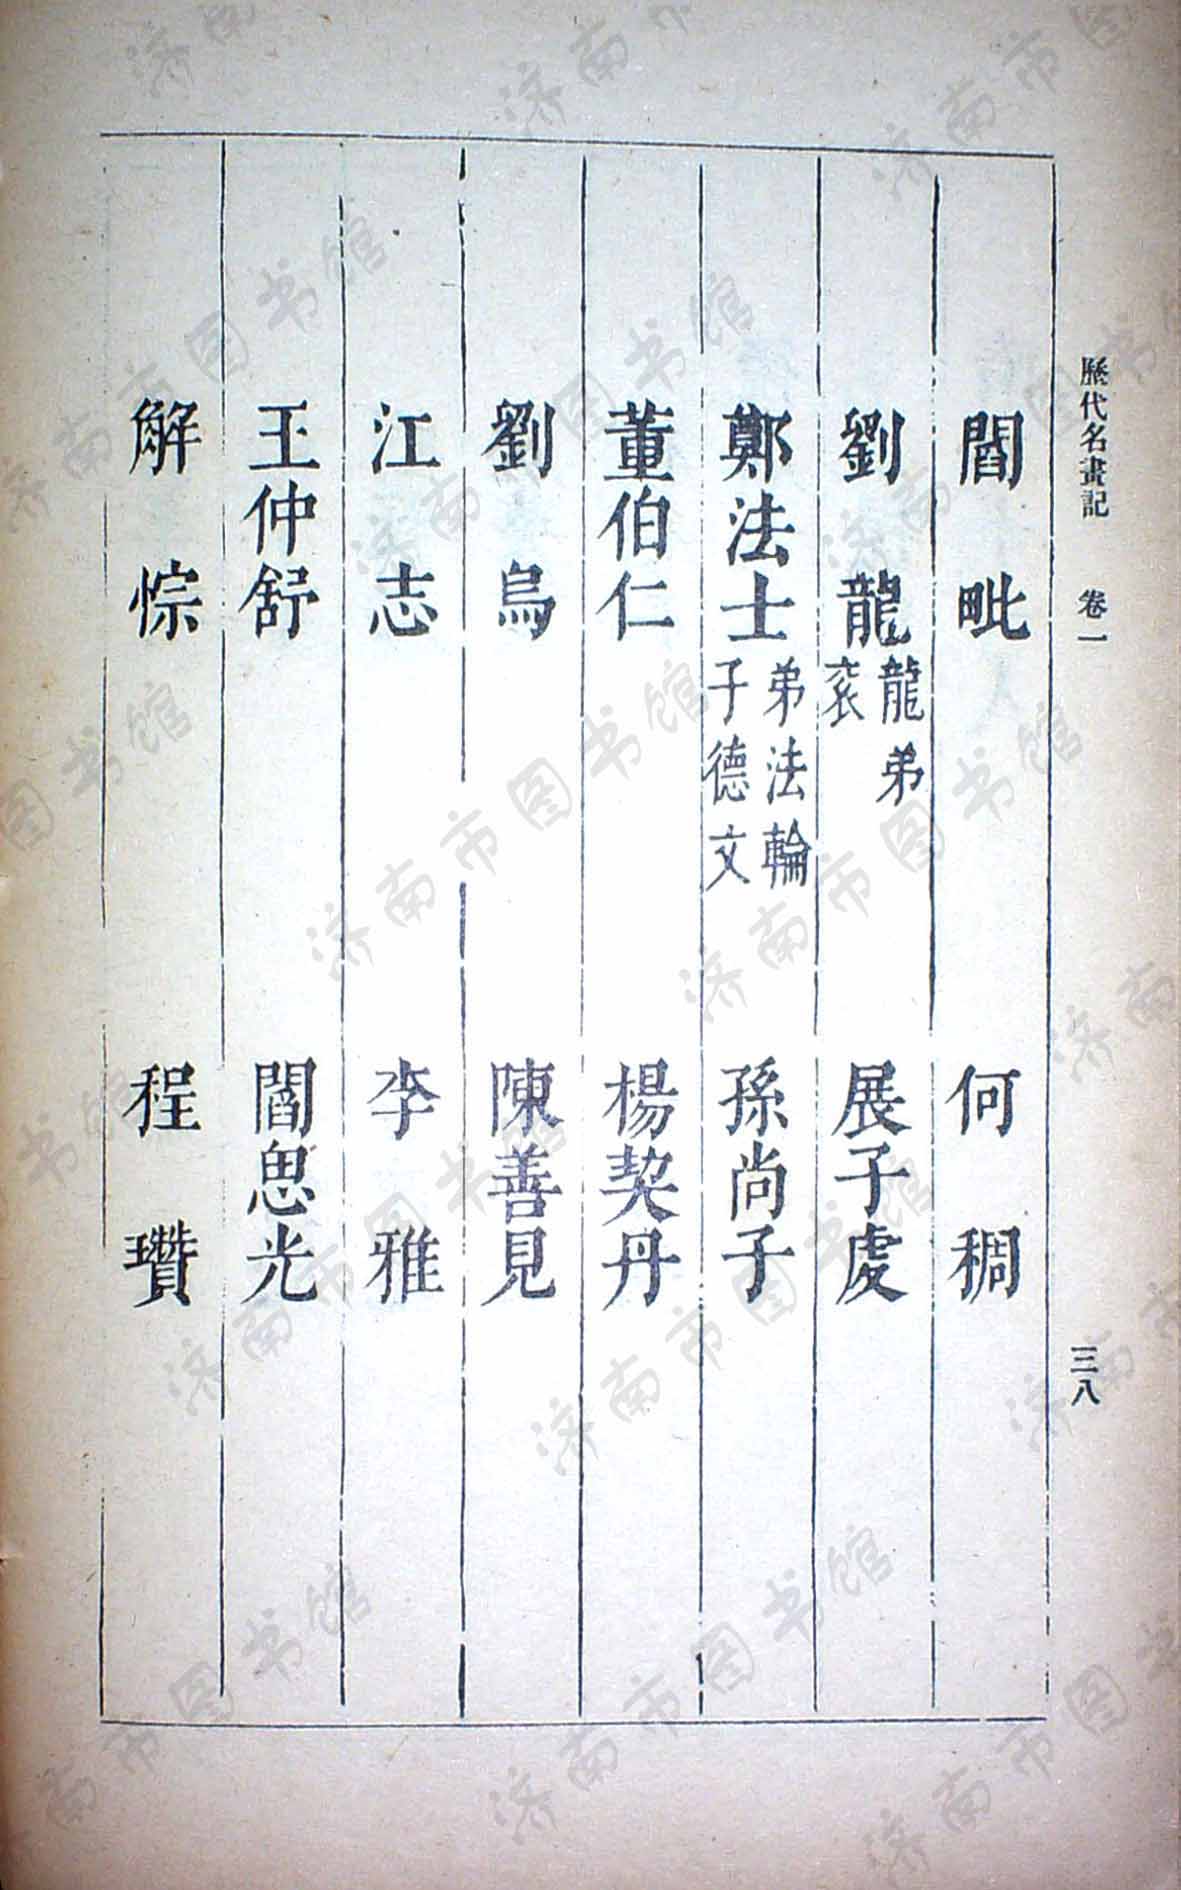 歷代名畫記 卷一 三八
閻毗 何稠
劉龍 龍弟袞 展子虔
鄭法士 弟法輪 子德文 孫尚子
董伯仁 楊契丹
劉烏 陳善見
江志 李雅
王仲舒 閻思光
解悰 程瓚
济南市图书馆